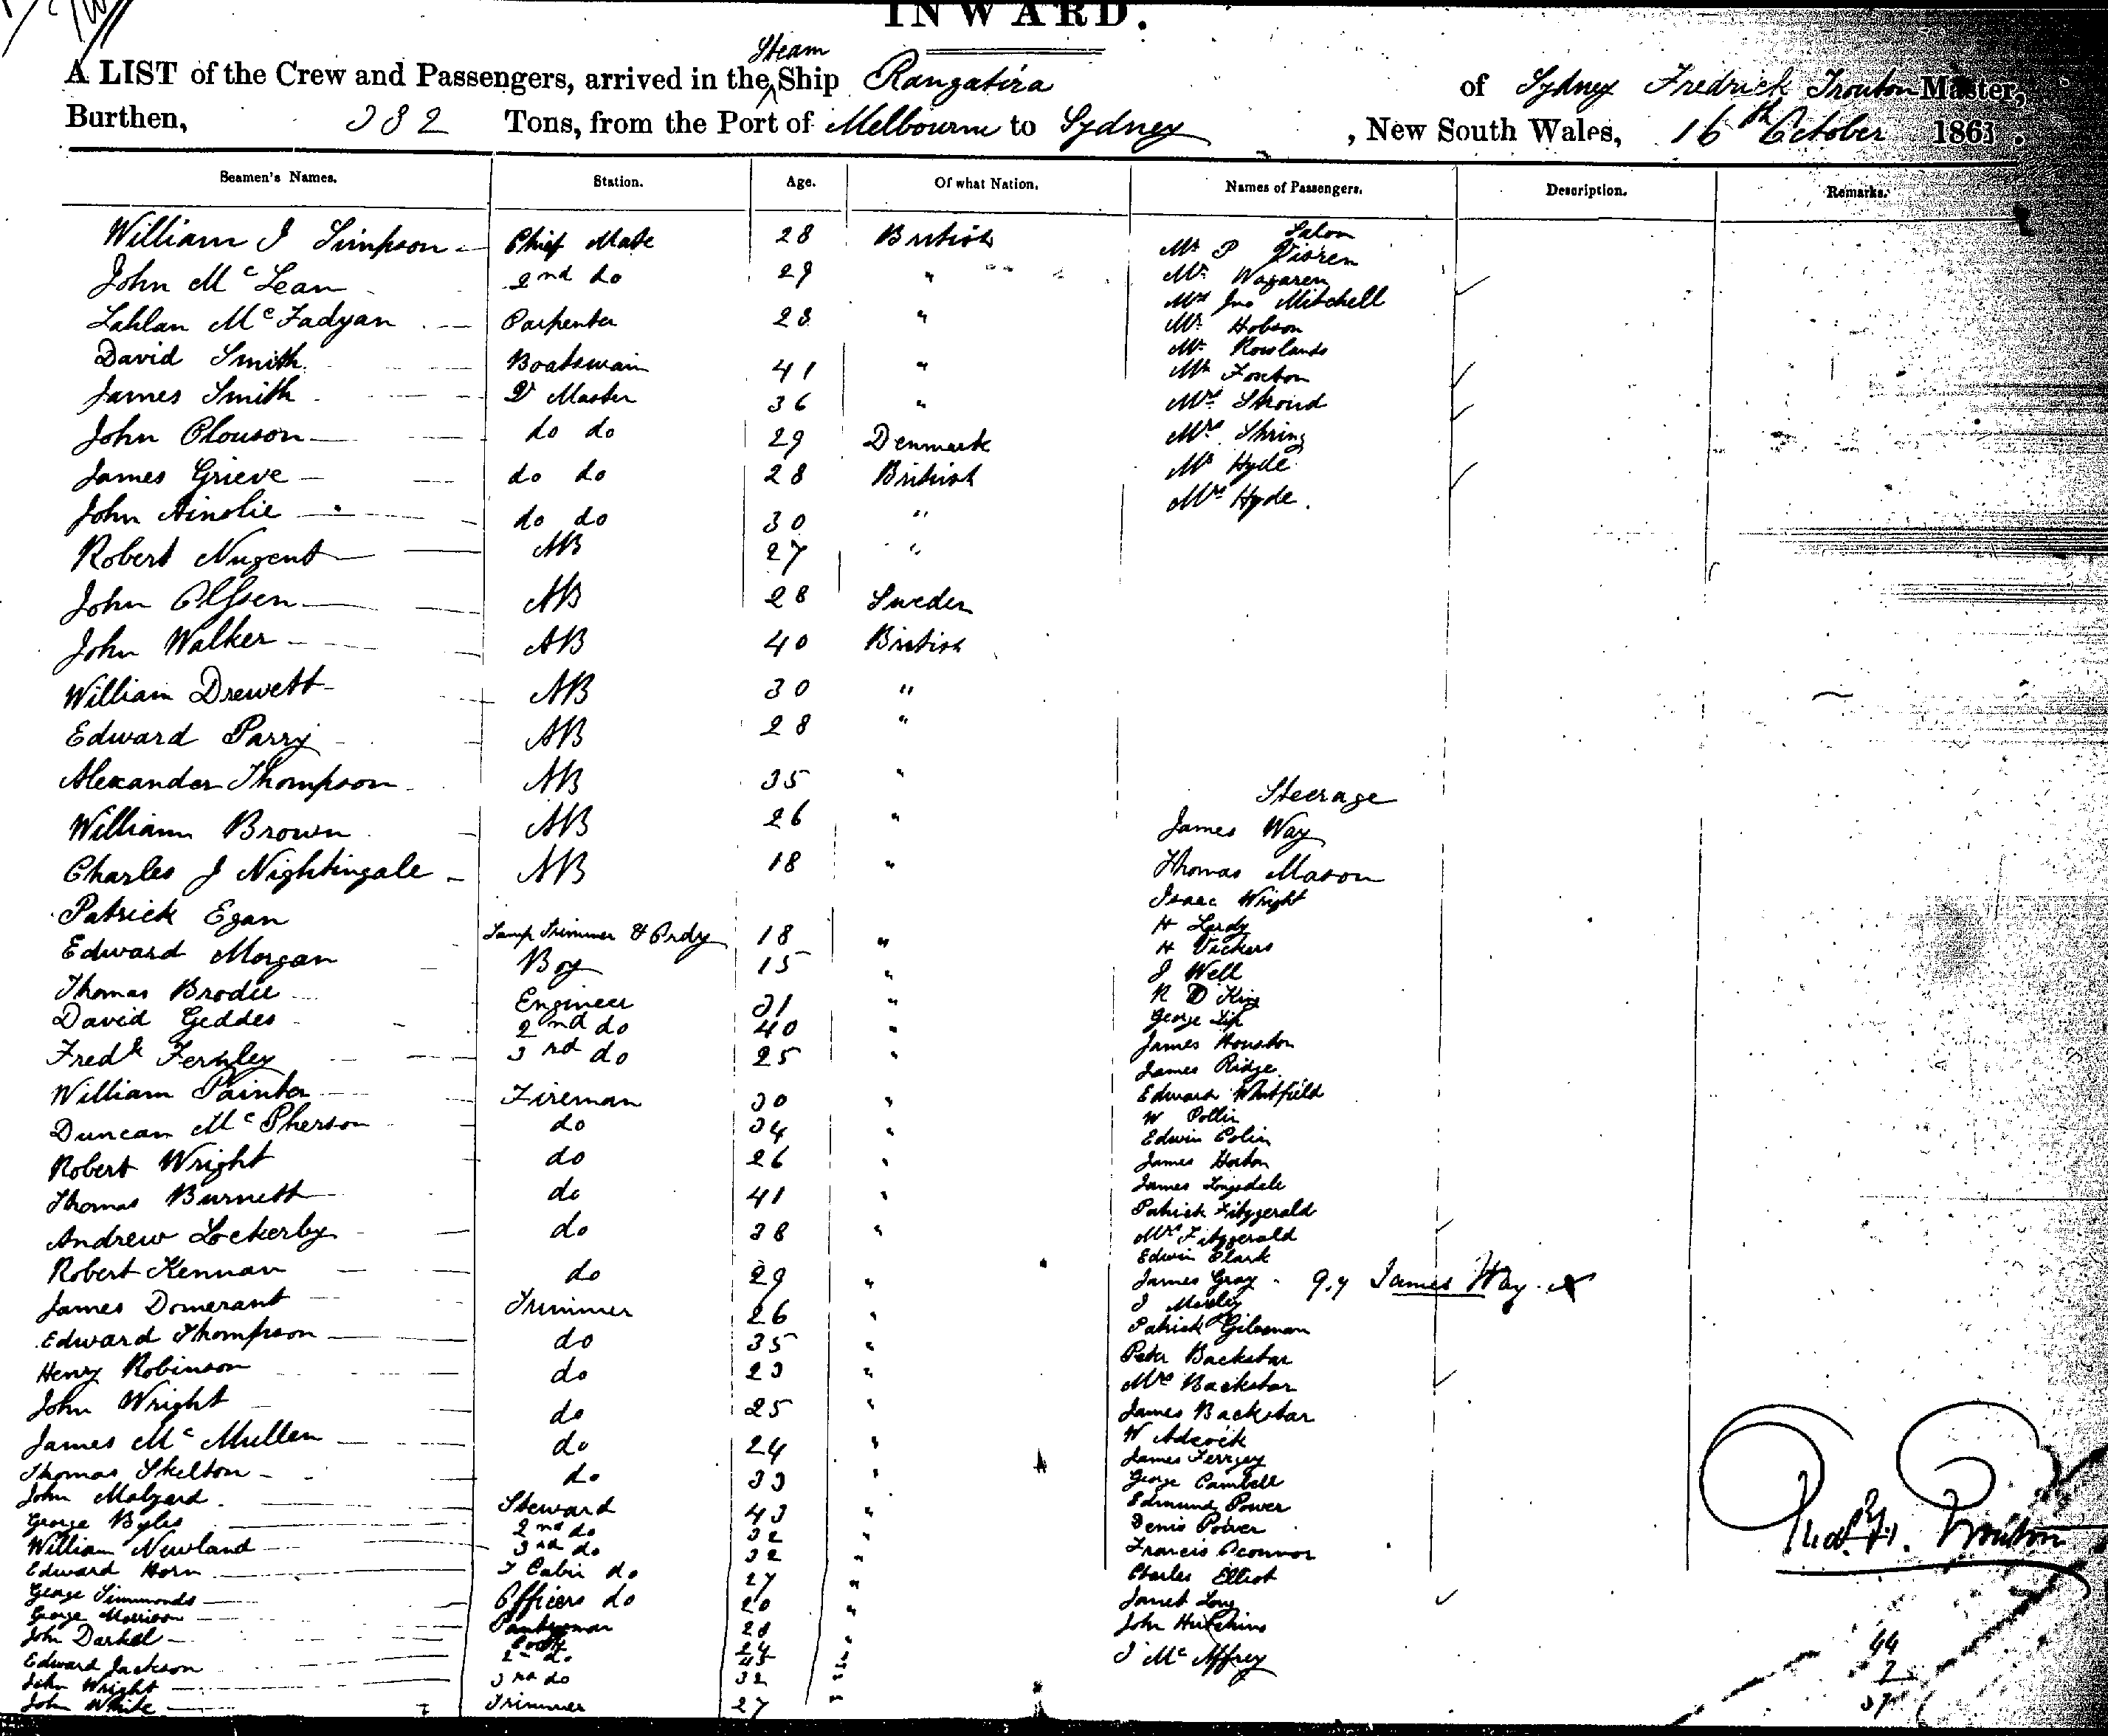 INWARD.
Steam
A LIST of the Crew and Passengers, arrived in the Ship Rangatira of Sydney Fredrick Trouton Master,
Burthen, 382 Tons, from the Port of Melbourne to Sydney, New South Wales, 16th October 1863.
Seamen's Names. Station. Age. Of what Nation. Names of Passengers. Description. Remarks.
William J Simpson Chief Mate 28 British
John McLean 2nd do 29 "
Lahlan McFadyan Carpenter 28 "
David Smith Boatswain 41 "
James Smith Qr Master 36 "
John Clouson do do 29 Denmark
James Grieve do do 28 British
John Ainslie do do 30 "
Robert Nugent AB 27 "
John Olfsen AB 28 Sweden
John Walker AB 40 British
William Drewett AB 30 "
Edward Parry AB 28 "
Alexander Thompson AB 35 "
William Brown AB 26 "
Charles J Nightingale AB 18 "
Patrick Egan Lamp Trimmer & Ordy 18 "
Edward Morgan Boy 15 "
Thomas Brodie Engineer 31 "
David Geddes 2nd do 40 "
Fredk Fernley 3rd do 25 "
William Painter Fireman 30 "
Duncan McPherson do 34 "
Robert Wright do 26 "
Thomas Burnett do 41 "
Andrew Lockerby do 38 "
Robert Kennan do 29 "
James Domerant Trimmer 26 "
Edward Thompson do 35 "
Henry Robinson do 23 "
John Wright do 25 "
James McMullen do 24 "
Thomas Skelton do 33 "
John Malzard Steward 43 "
George Byles 2nd do 32 "
William Newland 3rd do 32 "
Edward Horn F Cabin do 27 "
George Simmonds Officers do 20 "
George Morrison Pantryman 28 "
John Darkel Cook 24 "
Edward Jackson 2nd do 45 "
John Wright 3rd do 32 "
John White Trimmer 27 "
Salon
Mr P
Mr Wagaren
Mrs Jno Mitchell
Mr Hobson
Mr Rowlands
Mr Foxton
Mrs Stroud
Mrs Thring
Mr Hyde
Mrs Hyde.
Steerage
James Way
Thomas Mason
Isaac Wright
H Lardy
H Vickers
J Well
R D King
George
James Houston
James Ridge
Edward Whitfield
W Pollin
Edwin Colin
James Horton
James Longsdale
Patrick Fitzgerald
Mrs Fitzgerald
Edwin Clark
James Gray q.y James Way x
J Morley
Patrick Gilesman
Peter Backstar
Mrs Backstar
James Backstar
W Adcock
James Ferrgey
George Cambell
Edmund Power
Denis Power
Francis Oconnor
Charles Elliot
Janet Long
John Hutchins
J McAffrey
Fredk H. Trouton
44
7
37